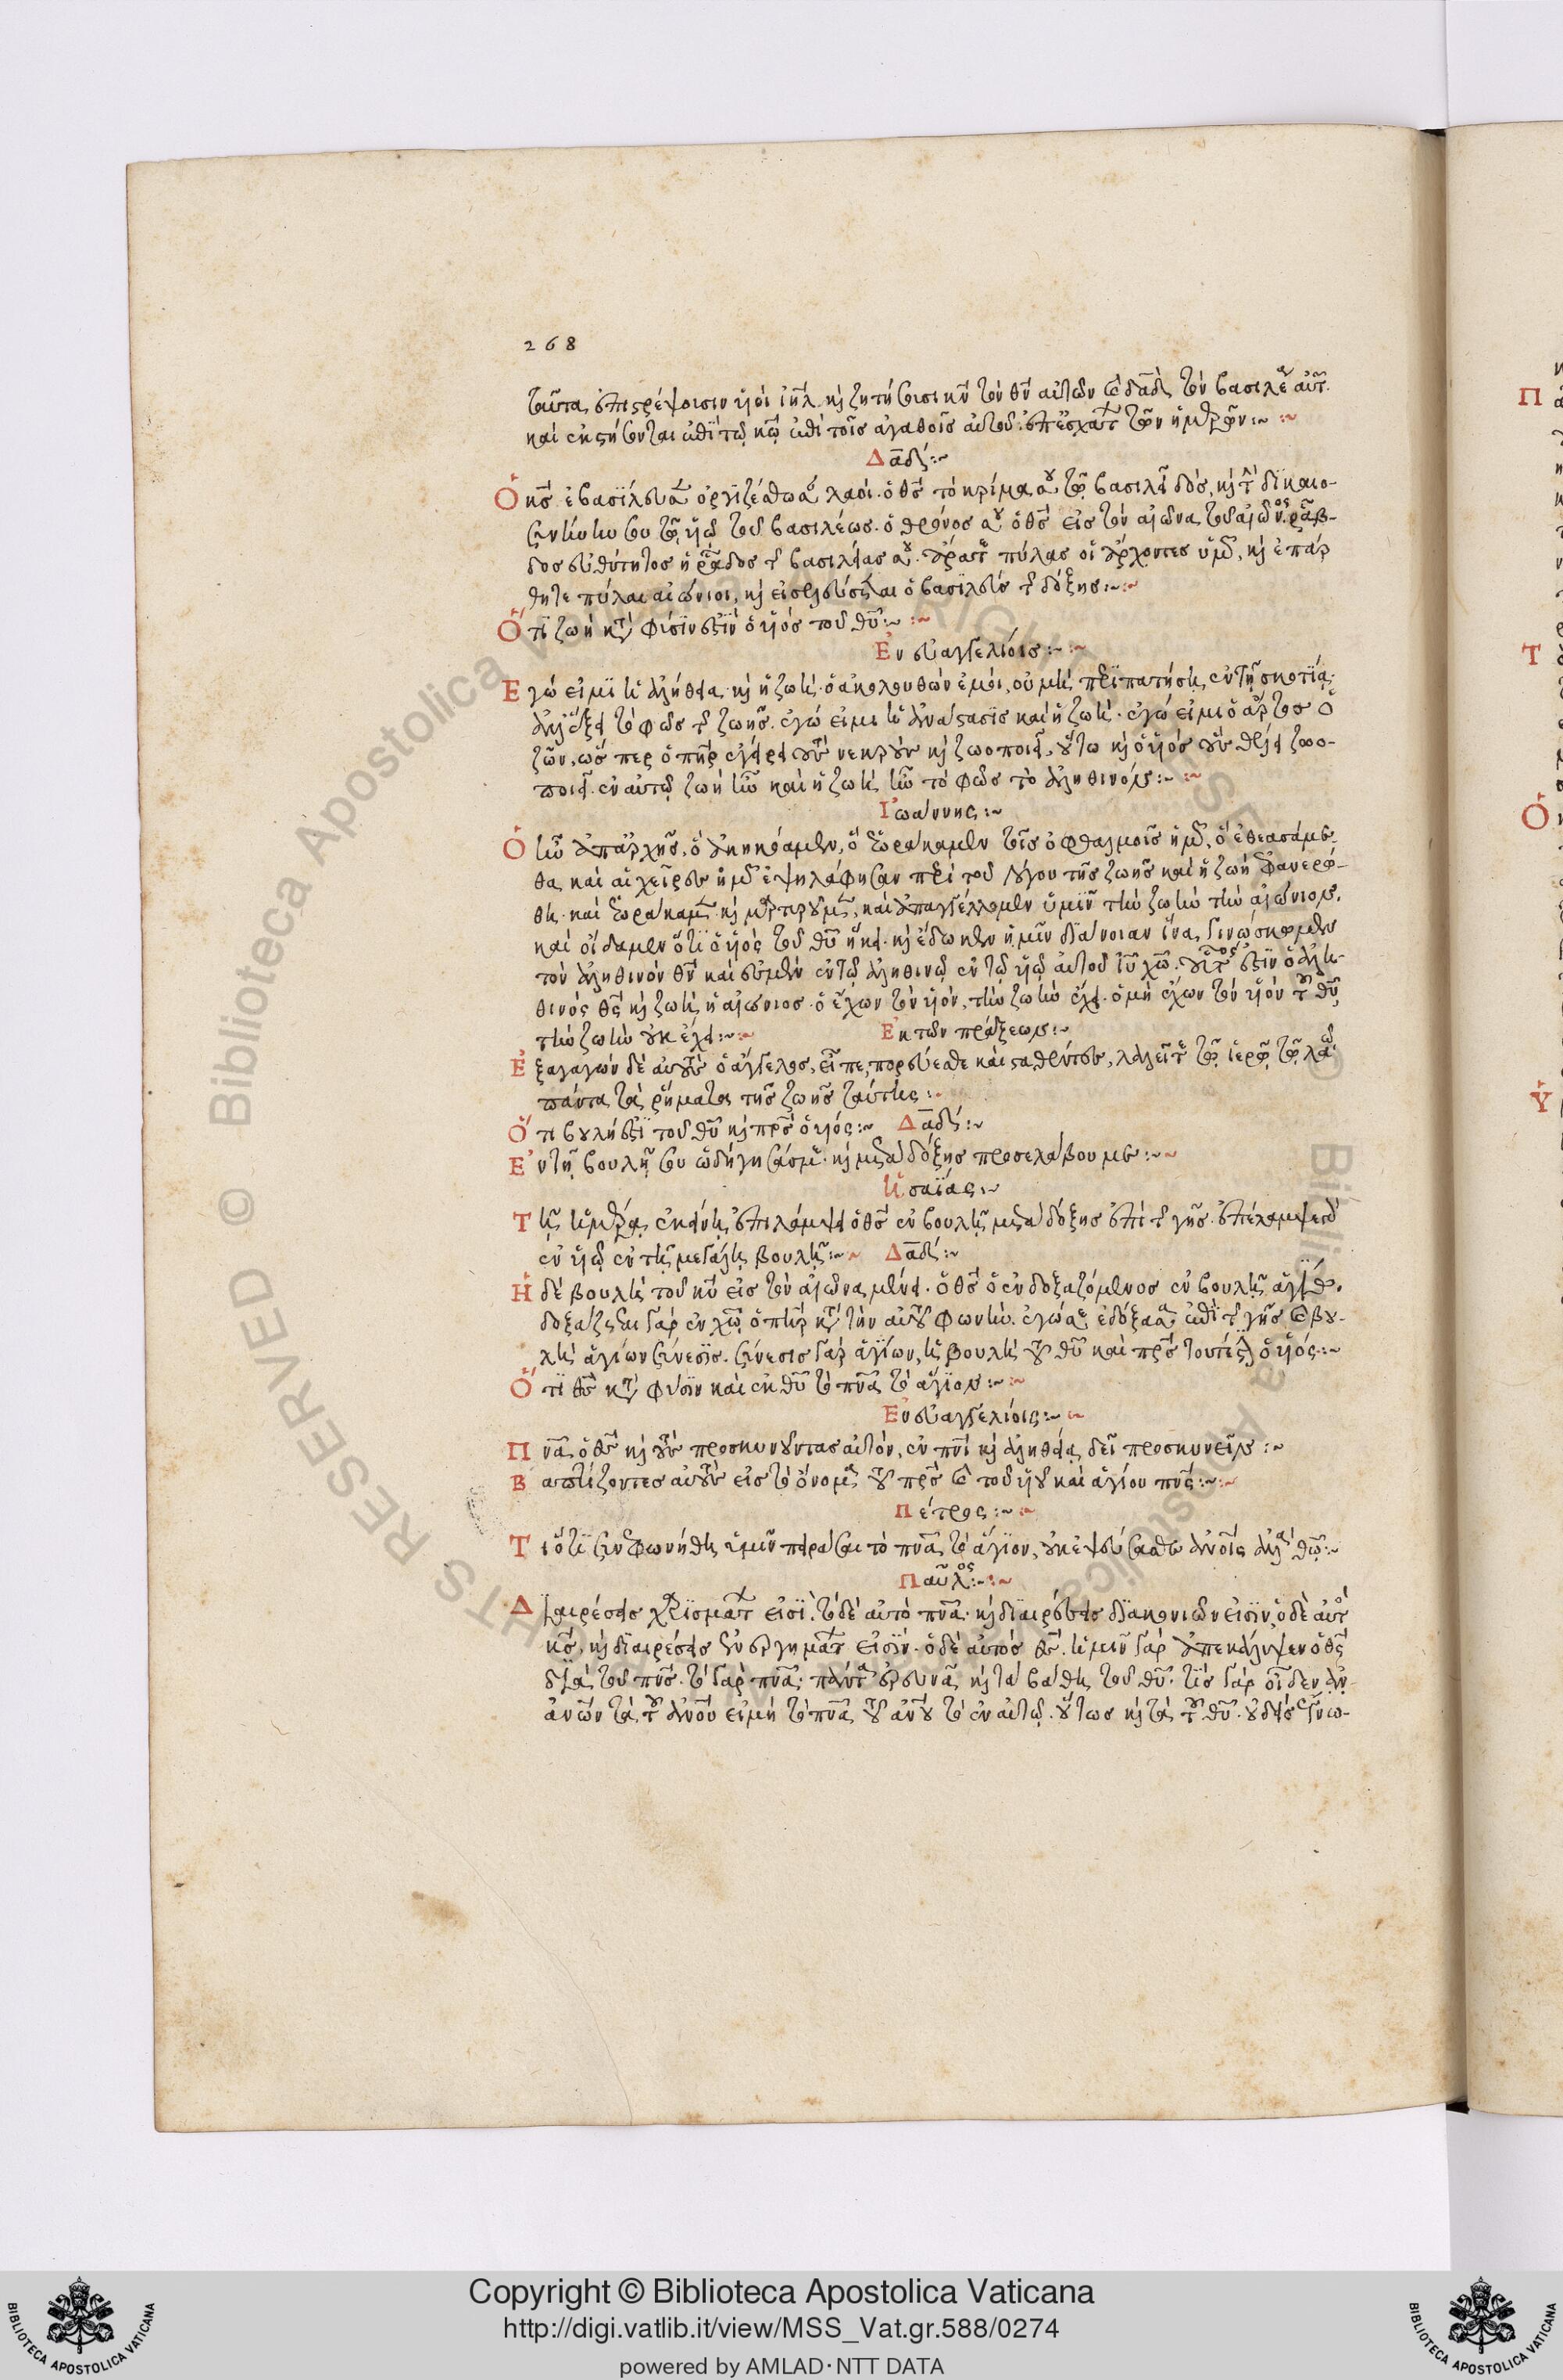 268
ταῦτα ἐπιστρέψουσιν υἱοὶ ιηλ καὶ ζητήσουσι κν τὸν θν αὐτῶν καὶ δαδ τὸν βασιλέα αὐτ
καὶ ἐκστήσονται ἐπὶ τῷ κω ἐπὶ τοῖς ἀγαθοῖς αὐτοῦ ἐπ' ἐσχάτ τῶν ἡμερῶν :~ :~
Δαδ :~
Ὁ κς ἐβασίλευσεν ὀργιζέσθωσαν λαοί. ὁ θς τὸ κρίμα σου τῷ βασιλεῖ δός, καὶ τὴν δικαιο-
σύνην σου τῷ υἱῷ τοῦ βασιλέως. ὁ θρόνος σου ὁ θς εἰς τὸν αἰῶνα τοῦ αἰῶνος. ῥάβ-
δος εὐθύτητος ἡ ῥάβδος τῆς βασιλείας σου. ἄρατε πύλας οἱ ἄρχοντες ὑμῶν, καὶ ἐπάρ
θητε πύλαι αἰώνιοι, καὶ εἰσελεύσεται ὁ βασιλεὺς τῆς δόξης :~ :~
Ὅτι ζωὴ κατὰ φύσιν ἐστὶν ὁ υἱὸς τοῦ θυ :~ :~
Ἐν εὐαγγελίοις :~ :~
Ἐγώ εἰμι ἡ ἀλήθεια καὶ ἡ ζωή. ὁ ἀκολουθῶν ἐμοί, οὐ μὴ περιπατήσῃ ἐν τῇ σκοτίᾳ
ἀλλ' ἕξει τὸ φῶς τῆς ζωῆς. ἐγώ εἰμι ἡ ἀνάστασις καὶ ἡ ζωή. ἐγώ εἰμι ὁ ἄρτος ὁ
ζῶν, ὥσπερ ὁ πηρ ἐγείρει τοὺς νεκροὺς καὶ ζωοποιεῖ, οὕτω καὶ ὁ υἱὸς οὓς θέλει ζωο-
ποιεῖ. ἐν αὐτῷ ζωὴ ἦν καὶ ἡ ζωὴ ἦν τὸ φῶς τὸ ἀληθινόν :~ :~
Ἰωάννης :~
Ὃ ἦν ἀπαρχῆς, ὃ ἀκηκόαμεν, ὃ ἑωράκαμεν τοῖς ὀφθαλμοῖς ἡμῶν, ὃ ἐθεασάμε-
θα καὶ αἱ χεῖρες ἡμῶν ἐψηλάφησαν περὶ τοῦ λόγου τῆς ζωῆς καὶ ἡ ζωὴ ἐφανερώ-
θη. καὶ ἑωράκαμεν καὶ μαρτυροῦμεν, καὶ ἀπαγγέλλομεν ὑμῖν τὴν ζωὴν τὴν αἰώνιον.
καὶ οἴδαμεν ὅτι ὁ υἱὸς τοῦ θυ ἥκει καὶ ἔδωκεν ἡμῖν διάνοιαν ἵνα γινώσκομεν
τὸν ἀληθινὸν θν καὶ ἐσμὲν ἐν τῷ ἀληθινῷ ἐν τῷ υἱῷ αὐτοῦ ιυ χω. οὗτός ἐστιν ὁ ἀλη-
θινὸς θς καὶ ζωὴ ἡ αἰώνιος. ὁ ἔχων τὸν υἱόν, τὴν ζωὴν ἔχει. ὁ μὴ ἔχων τὸν υἱὸν τοῦ θυ
τὴν ζωὴν οὐκ ἔχει :~ :~ Ἐκ τῶν πράξεων :~
Ἐξαγαγὼν δὲ αὐτοὺς ὁ ἄγγελος, εἶπε, πορεύεσθε καὶ σταθέντες, λαλεῖτε τῷ ἱερῷ τῷ λαῷ
πάντα τὰ ῥήματα τῆς ζωῆς ταύτης :~
Ὅτι βουλή ἐστι τοῦ θυ καὶ πρς ὁ υἱός :~ Δαδ :~
Ἐν τῇ βουλῇ σου ὡδήγησάς με καὶ μετὰ δόξης προσελάβου με :~ ~
Ἡσαΐας :~
Τῇ ἡμέρᾳ ἐκείνῃ ἐπιλάμψει ὁ θς ἐν βουλῇ μετὰ δόξης ἐπὶ τῆς γῆς.
ἐν υἱῷ ἐν τῇ μεγάλῃ βουλῇ :~ ~ Δαδ :~
Ἡ δὲ βουλὴ τοῦ κυ εἰς τὸν αἰῶνα μένει. ὁ θς ὁ ἐνδοξαζόμενος ἐν βουλῇ ἁγίων.
δοξάζεται γὰρ ἐν χω ὁ πηρ κατὰ τὴν αὐτοῦ φωνήν. ἐγώ σε ἐδόξασα ἐπὶ τῆς γῆς καὶ βου-
λὴ ἁγίων σύνεσις. σύνεσις γὰρ ἁγίων, ἡ βουλὴ τοῦ θυ καὶ πρς τουτέστιν ὁ υἱός :~
Ὅτι θς κατὰ φύσιν καὶ ἐκ θυ τὸ πνα τὸ ἅγιον :~ :~
Ἐν εὐαγγελίοις :~ ~
Πνα ὁ θς καὶ τοὺς προσκυνοῦντας αὐτόν, ἐν πνι καὶ ἀληθείᾳ δεῖ προσκυνεῖν :~
Βαπτίζοντες αὐτοὺς εἰς τὸ ὄνομα τοῦ πρς καὶ τοῦ υἱοῦ καὶ ἁγίου πνς :~ :~
Πέτρος :~ ~
Τί ὅτι συνεφωνήθη ὑμῖν πειράσαι τὸ πνα τὸ ἅγιον, οὐκ ἐψεύσασθε ἀνοις ἀλλὰ θω :~
Παῦλος :~ :~
Διαιρέσεις χαρισμάτ εἰσί. τὸ δὲ αὐτὸ πνα. καὶ διαιρέσεις διακονιῶν εἰσιν, ὁ δὲ αὐτὸς
κς. καὶ διαιρέσεις ἐνεργημάτ εἰσίν. ὁ δὲ αὐτὸς θς. ἡμῖν γὰρ ἀπεκάλυψεν ὁ θς
διὰ τοῦ πνς. τὸ γὰρ πνα πάντα ἐρευνᾷ καὶ τὰ βάθη τοῦ θυ. τίς γὰρ οἶδεν ἀν-
ανων τὰ τοῦ ἀνου εἰ μὴ τὸ πνα τοῦ ανου τὸ ἐν αὐτῷ. οὕτως καὶ τὰ τοῦ θυ. οὐδεὶς ἔγνω-
Copyright © Biblioteca Apostolica Vaticana
http://digi.vatlib.it/view/MSS_Vat.gr.588/0274
powered by AMLAD·NTT DATA
BIBLIOTECA APOSTOLICA VATICANA
BIBLIOTECA APOSTOLICA VATICANA